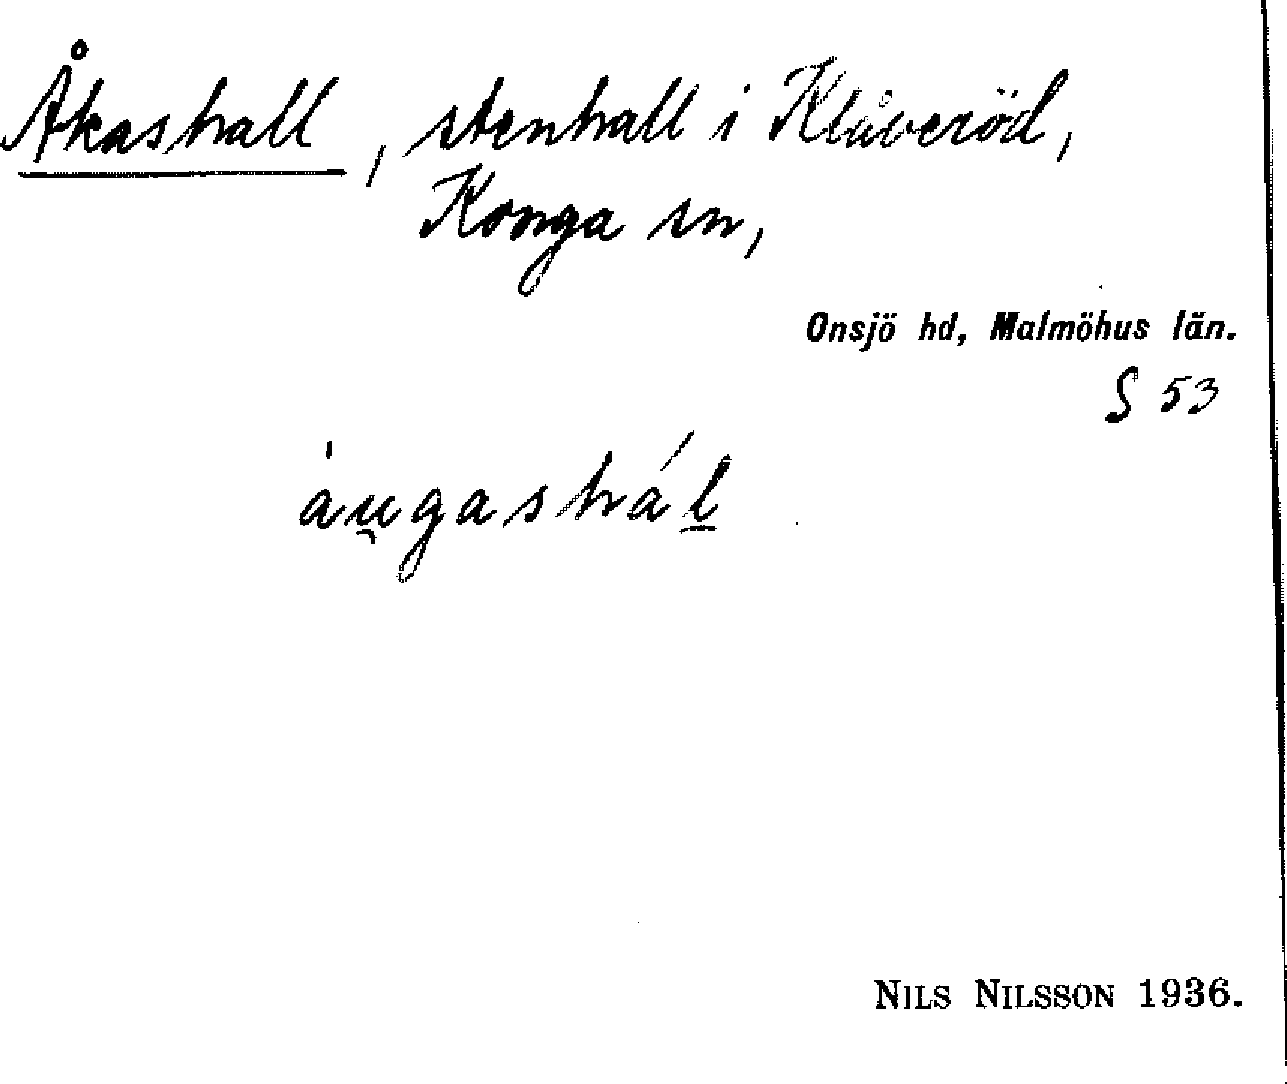 Åkashall, stenhall i Klåveröd,
Konga sn,
Onsjö hd, Malmöhus län.
S 53
àu̯gashál̲
NILS NILSSON 1936.